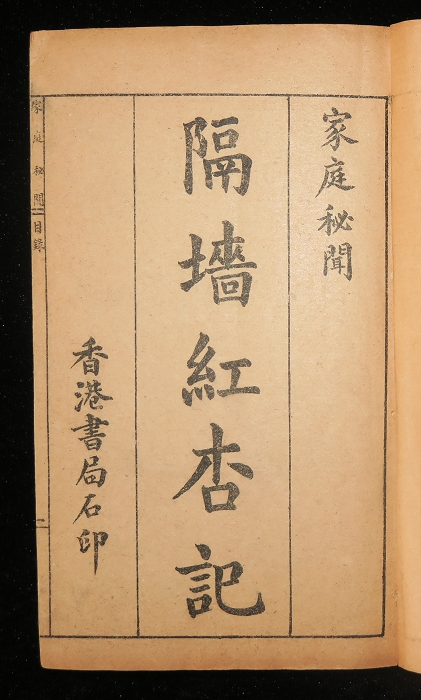 家庭秘聞
隔墻紅杏記
香港書局石印
家庭秘聞 目錄